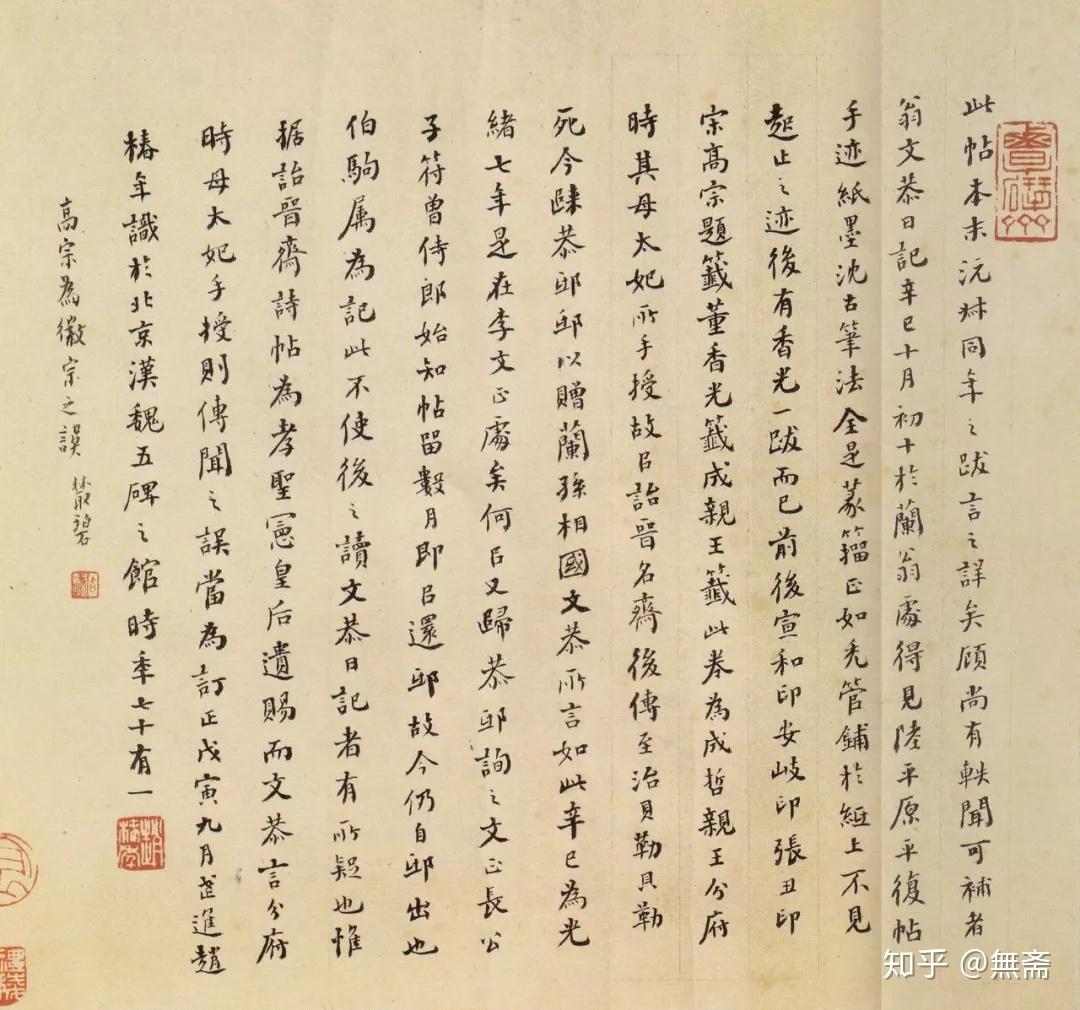 此帖本末沅叔同年之跋言之詳矣顧尚有軼聞可補者
翁文恭日記辛巳十月初十於蘭翁處得見陸平原平復帖
手迹紙墨沈古筆法全是篆籀正如禿管鋪於紙上不見
起止之迹後有香光一跋而已前後宣和印安岐印張丑印
宗高宗題籤董香光籤成親王籤此卷為成哲親王分府
時其母太妃所手授故㠯詒晉名齋後傳至治貝勒貝勒
死今歸恭邸邸以贈蘭孫相國文恭所言如此辛巳為光
緒七年是在李文正處矣何㠯又歸恭邸詢之文正長公
子符曾侍郎始知帖留數月即㠯還邸故今仍自邸出也
伯駒属為記此不使後之讀文恭日記者有所疑也惟
据詒晉齋詩帖為孝聖憲皇后遺賜而文恭言分府
時母太妃手授則傳聞之誤當為訂正戊寅九月武進趙
椿年識於北京漢魏五碑之館時年七十有一
高宗為徽宗之誤
趙椿年
知乎 @無斋